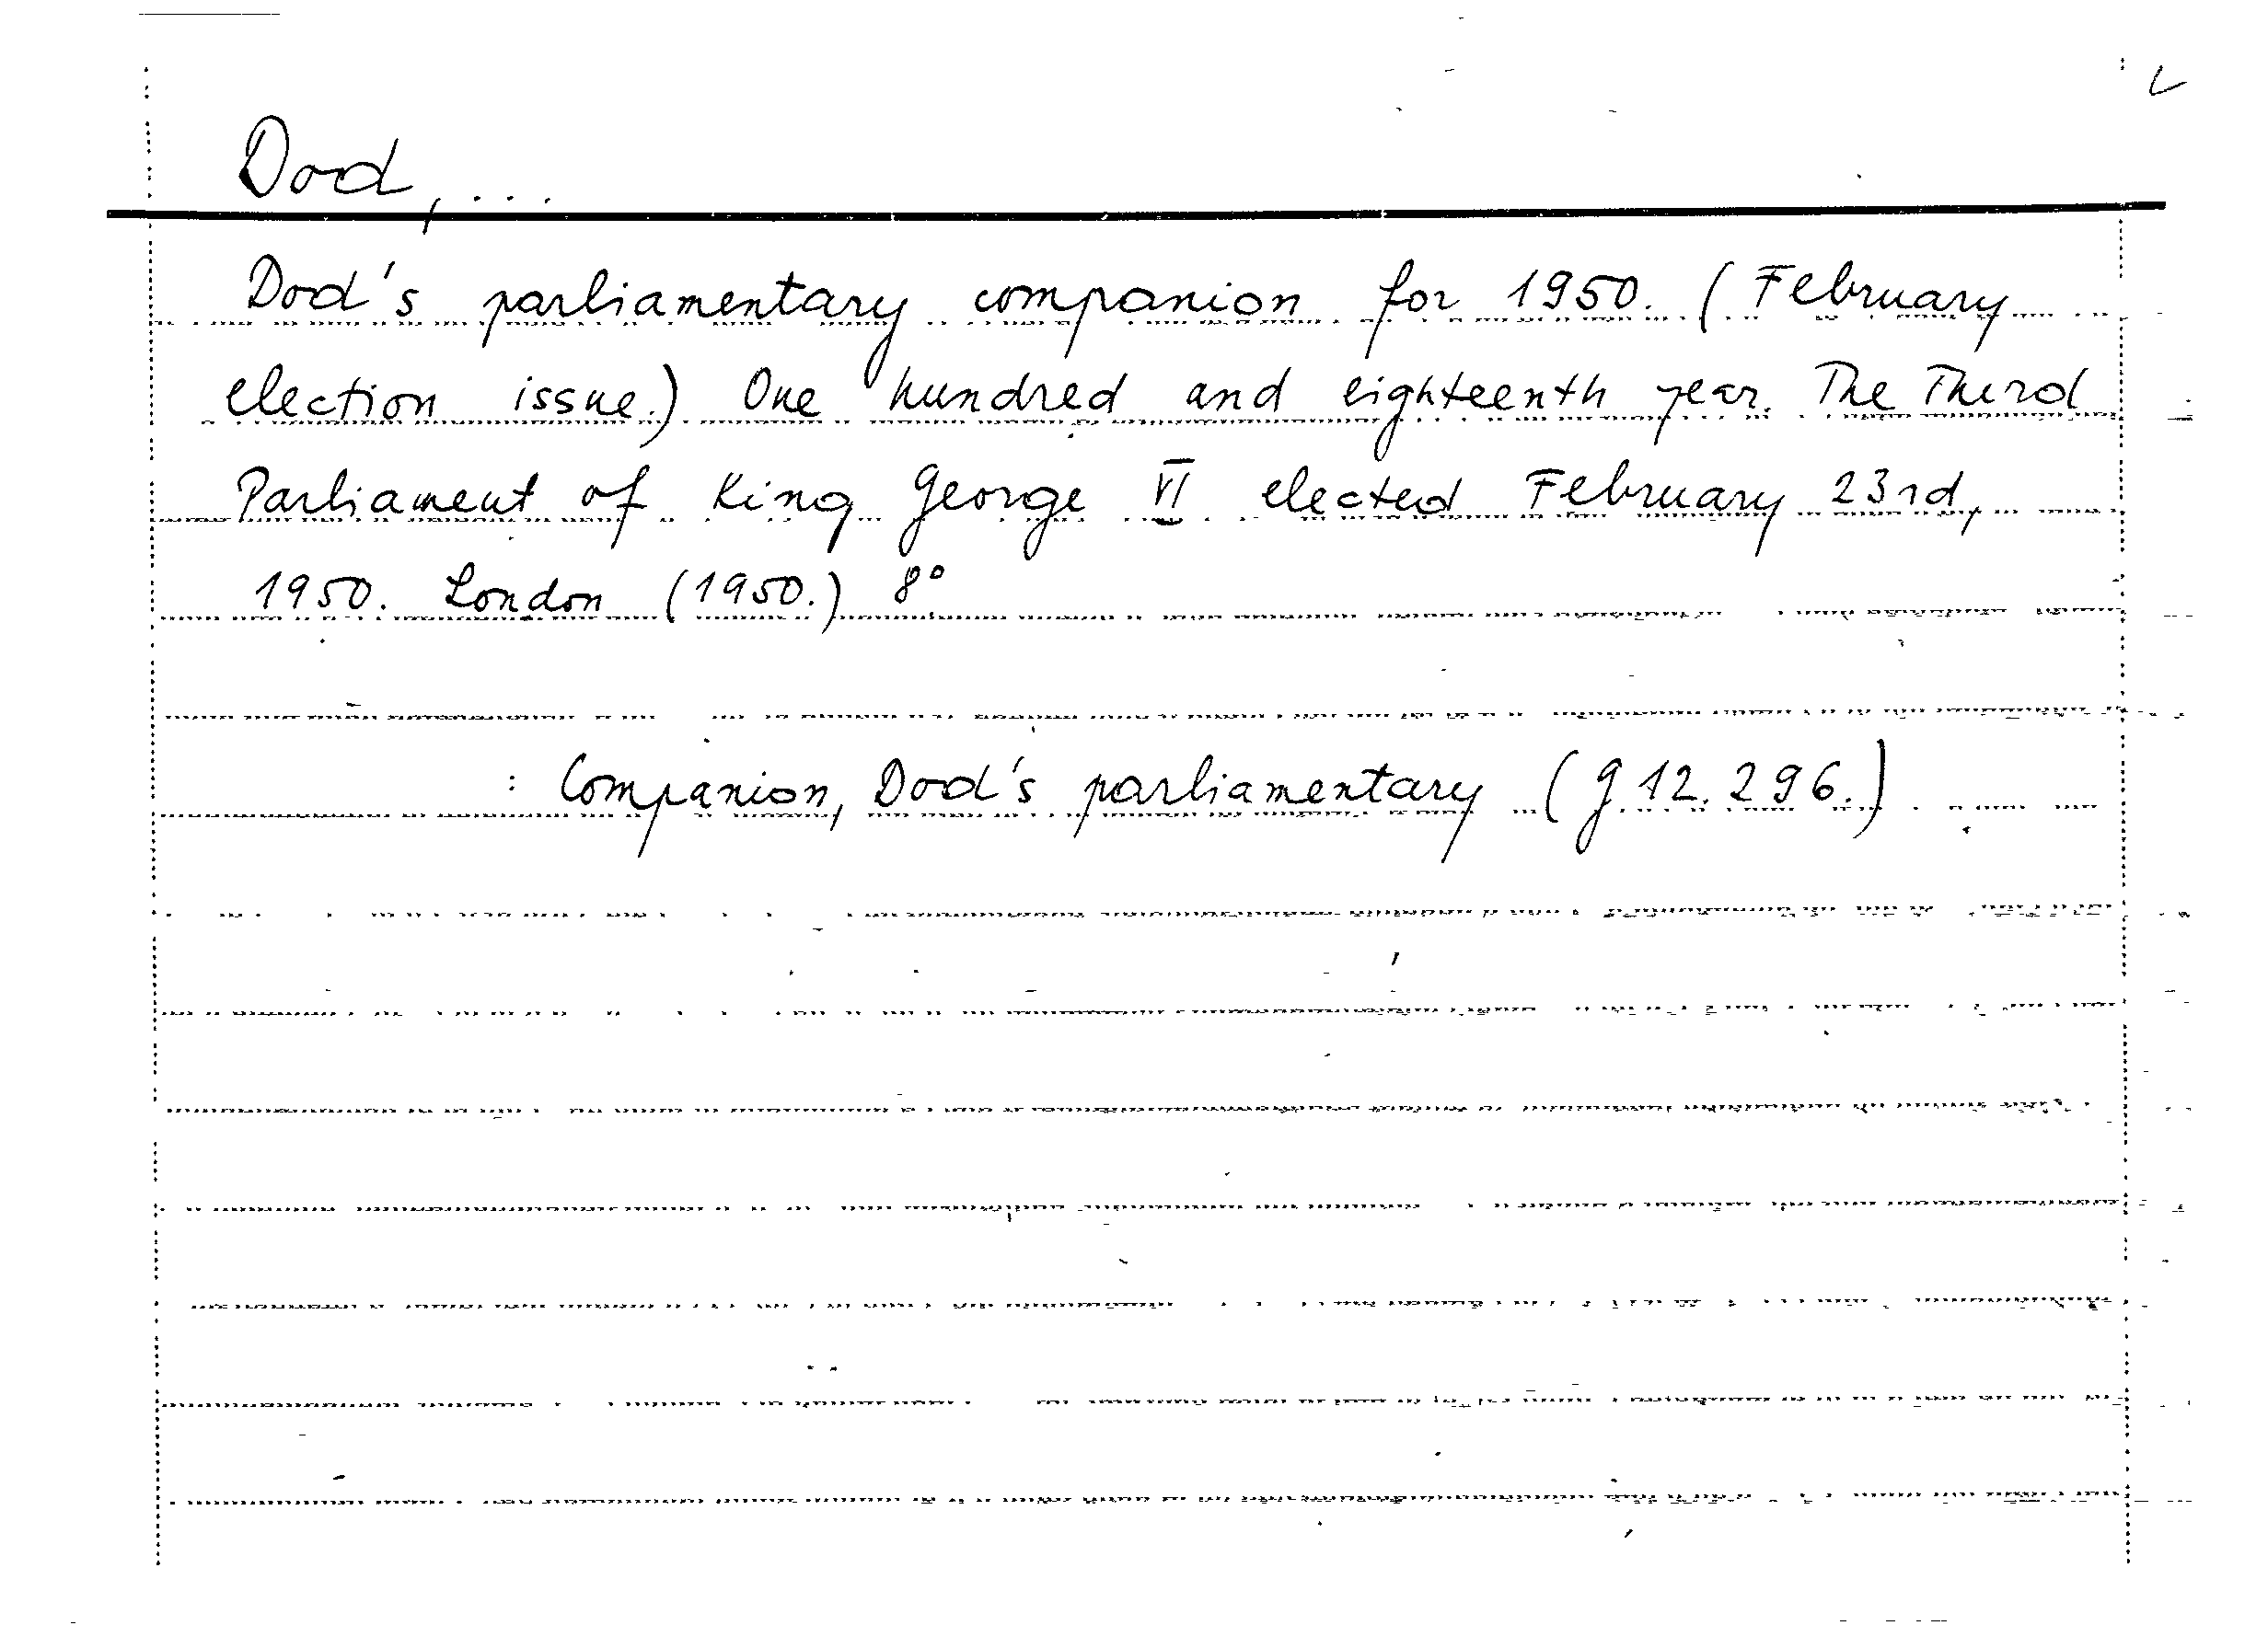 Dod, ...
Dod's parliamentary companion for 1950. (February
election issue.) One hundred and eighteenth year. The Third
Parliament of King George VI elected February 23rd,
1950. London (1950.) 8°
: Companion, Dod's parliamentary (g. 12. 296.)